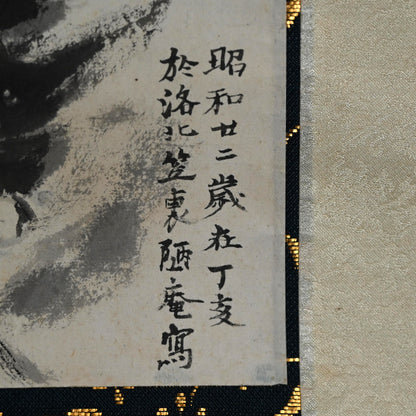 昭和廿二歳在丁亥
於洛北笠裏陋庵寫